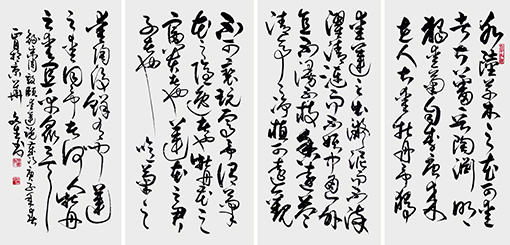 水陸草木之花可愛
者甚蕃晋陶淵明
獨愛菊自李唐來
世人甚愛牡丹予獨
愛蓮之出淤泥而不染
濯清漣而不妖中通外
直不蔓不枝香遠益
清亭亭淨植可遠觀
而不可褻玩焉予謂菊
花之隱逸者也牡丹花之
富貴者也蓮花之君
子者也噫菊之
愛陶後鮮有聞蓮
之愛同予者何人牡丹
之愛宜乎眾矣
周敦頤愛蓮說